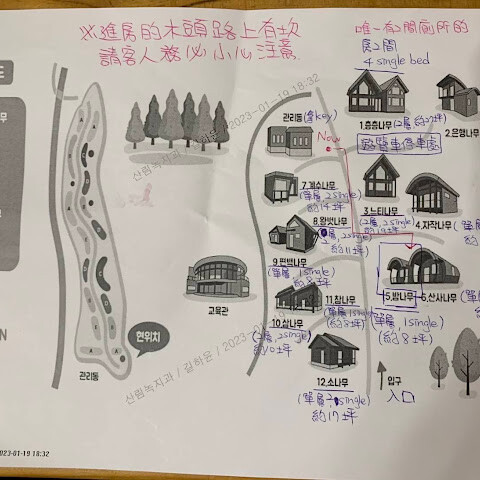 ※進房的木頭路上有坎
請客人務必小心注意
唯一有2間廁所的
房2間
4 single bed
산림녹지과 / 길하운 / 2023-01-19 18:32
관리동 (拿key)
Now
1.층층나무 (2層, 約22坪)
2.은행나무
遊覽車停車處
7.계수나무
(單層, 2single)
約14坪
3.느티나무
(2層, 2single)
約19坪
4.자작나무
8.왕벚나무
(2層, 2single)
約11坪
9.편백나무
(單層, 1single)
約8坪
교육관
11.참나무
(單層, 1single)
約8坪
5.밤나무
(單層, 1single)
約8坪
6.산사나무
10.삼나무
(2層, 2single)
約10坪
현위치
12.소나무
約17坪
입구
入口
관리동
산림녹지과 / 길하운 / 2023-01-19
2023-01-19 18:32